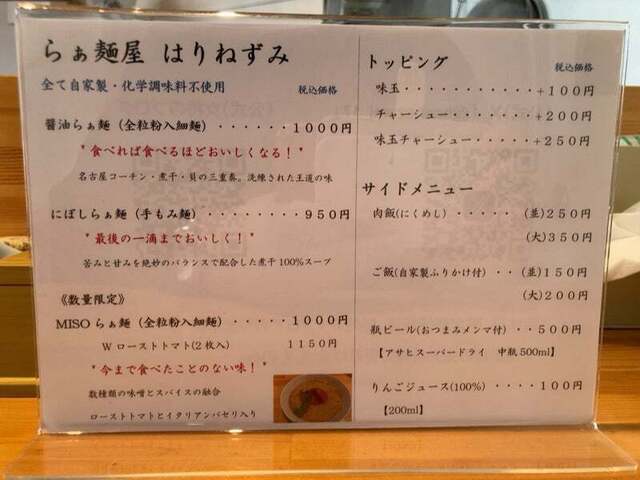 らぁ麺屋 はりねずみ
全て自家製・化学調味料不使用 税込価格
醤油らぁ麺（全粒粉入細麺）・・・・・・1000円
"食べれば食べるほどおいしくなる！"
名古屋コーチン・煮干・貝の三重奏。洗練された王道の味
にぼしらぁ麺（手もみ麺）・・・・・・・・950円
"最後の一滴までおいしく！"
苦みと甘みを絶妙のバランスで配合した煮干100%スープ
《数量限定》
MISOらぁ麺（全粒粉入細麺）・・・・・1000円
Wローストトマト(2枚入) 1150円
"今まで食べたことのない味！"
数種類の味噌とスパイスの融合
ローストトマトとイタリアンパセリ入り
トッピング 税込価格
味玉・・・・・・・・・・・+100円
チャーシュー・・・・・・・+200円
味玉チャーシュー・・・・・+250円
サイドメニュー
肉飯(にくめし)・・・・・(並)250円
(大)350円
ご飯(自家製ふりかけ付)・・(並)150円
(大)200円
瓶ビール(おつまみメンマ付)・・500円
【アサヒスーパードライ 中瓶500ml】
りんごジュース(100%)・・・・100円
【200ml】